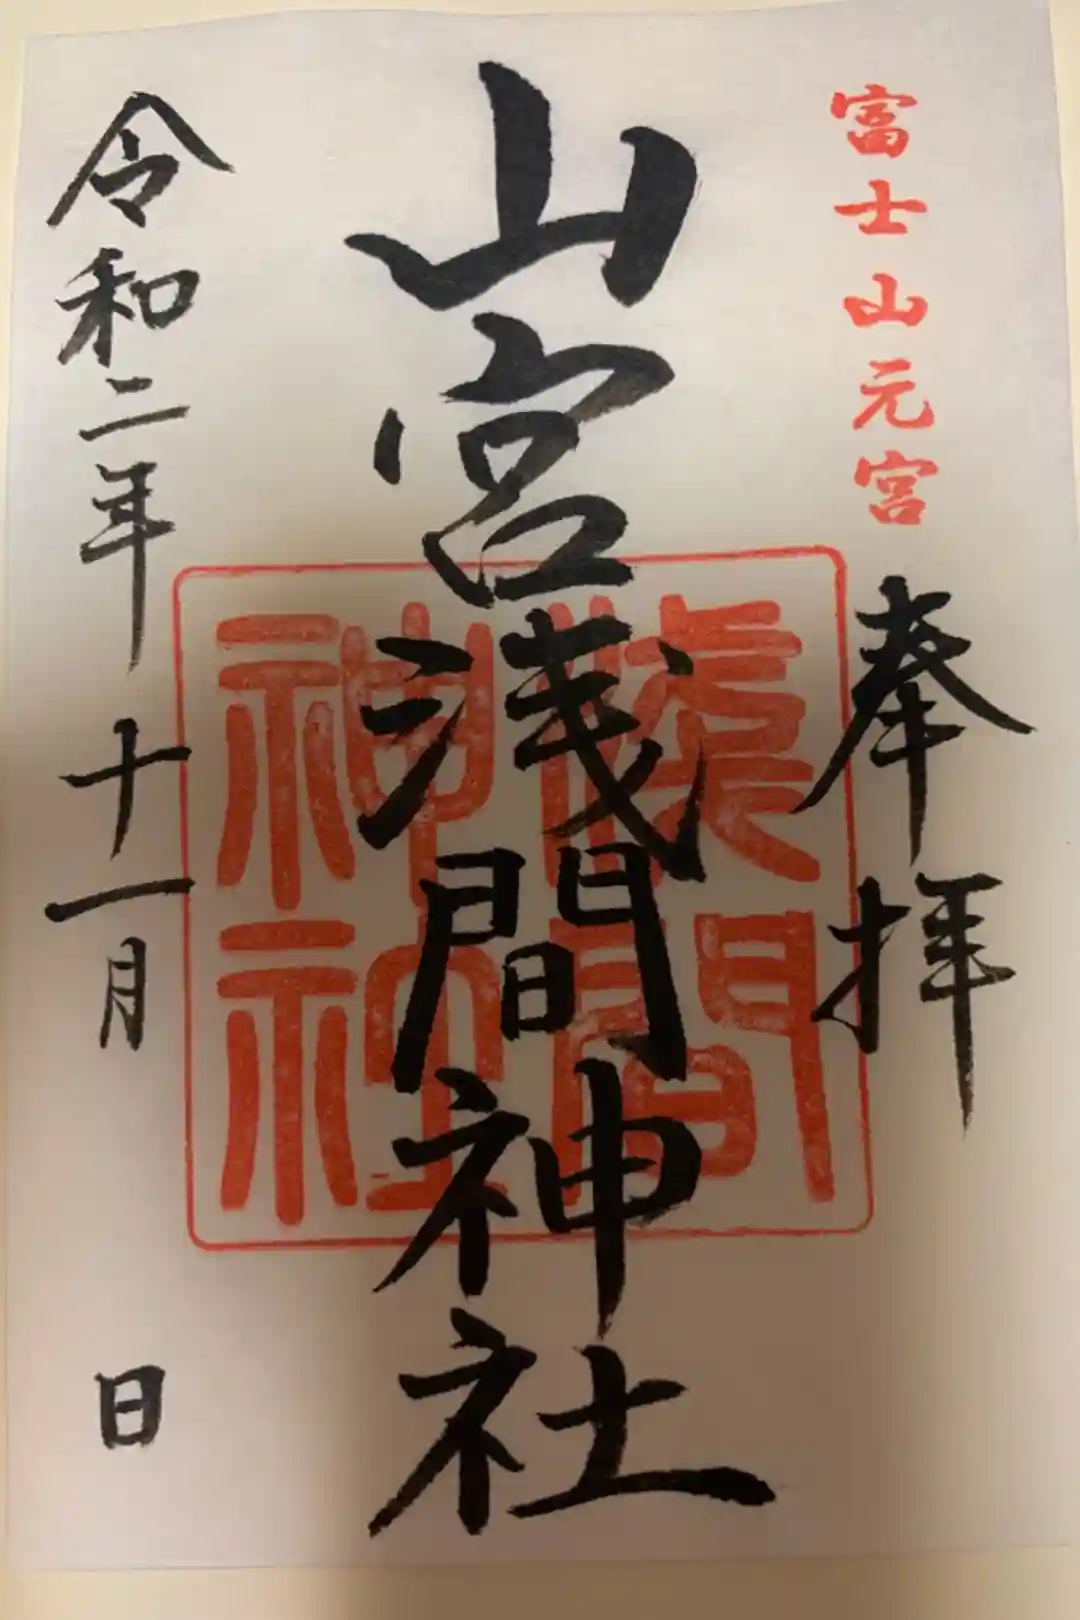 富士山元宮
奉拝
山宮浅間神社
浅間
神社
令和二年十一月 日